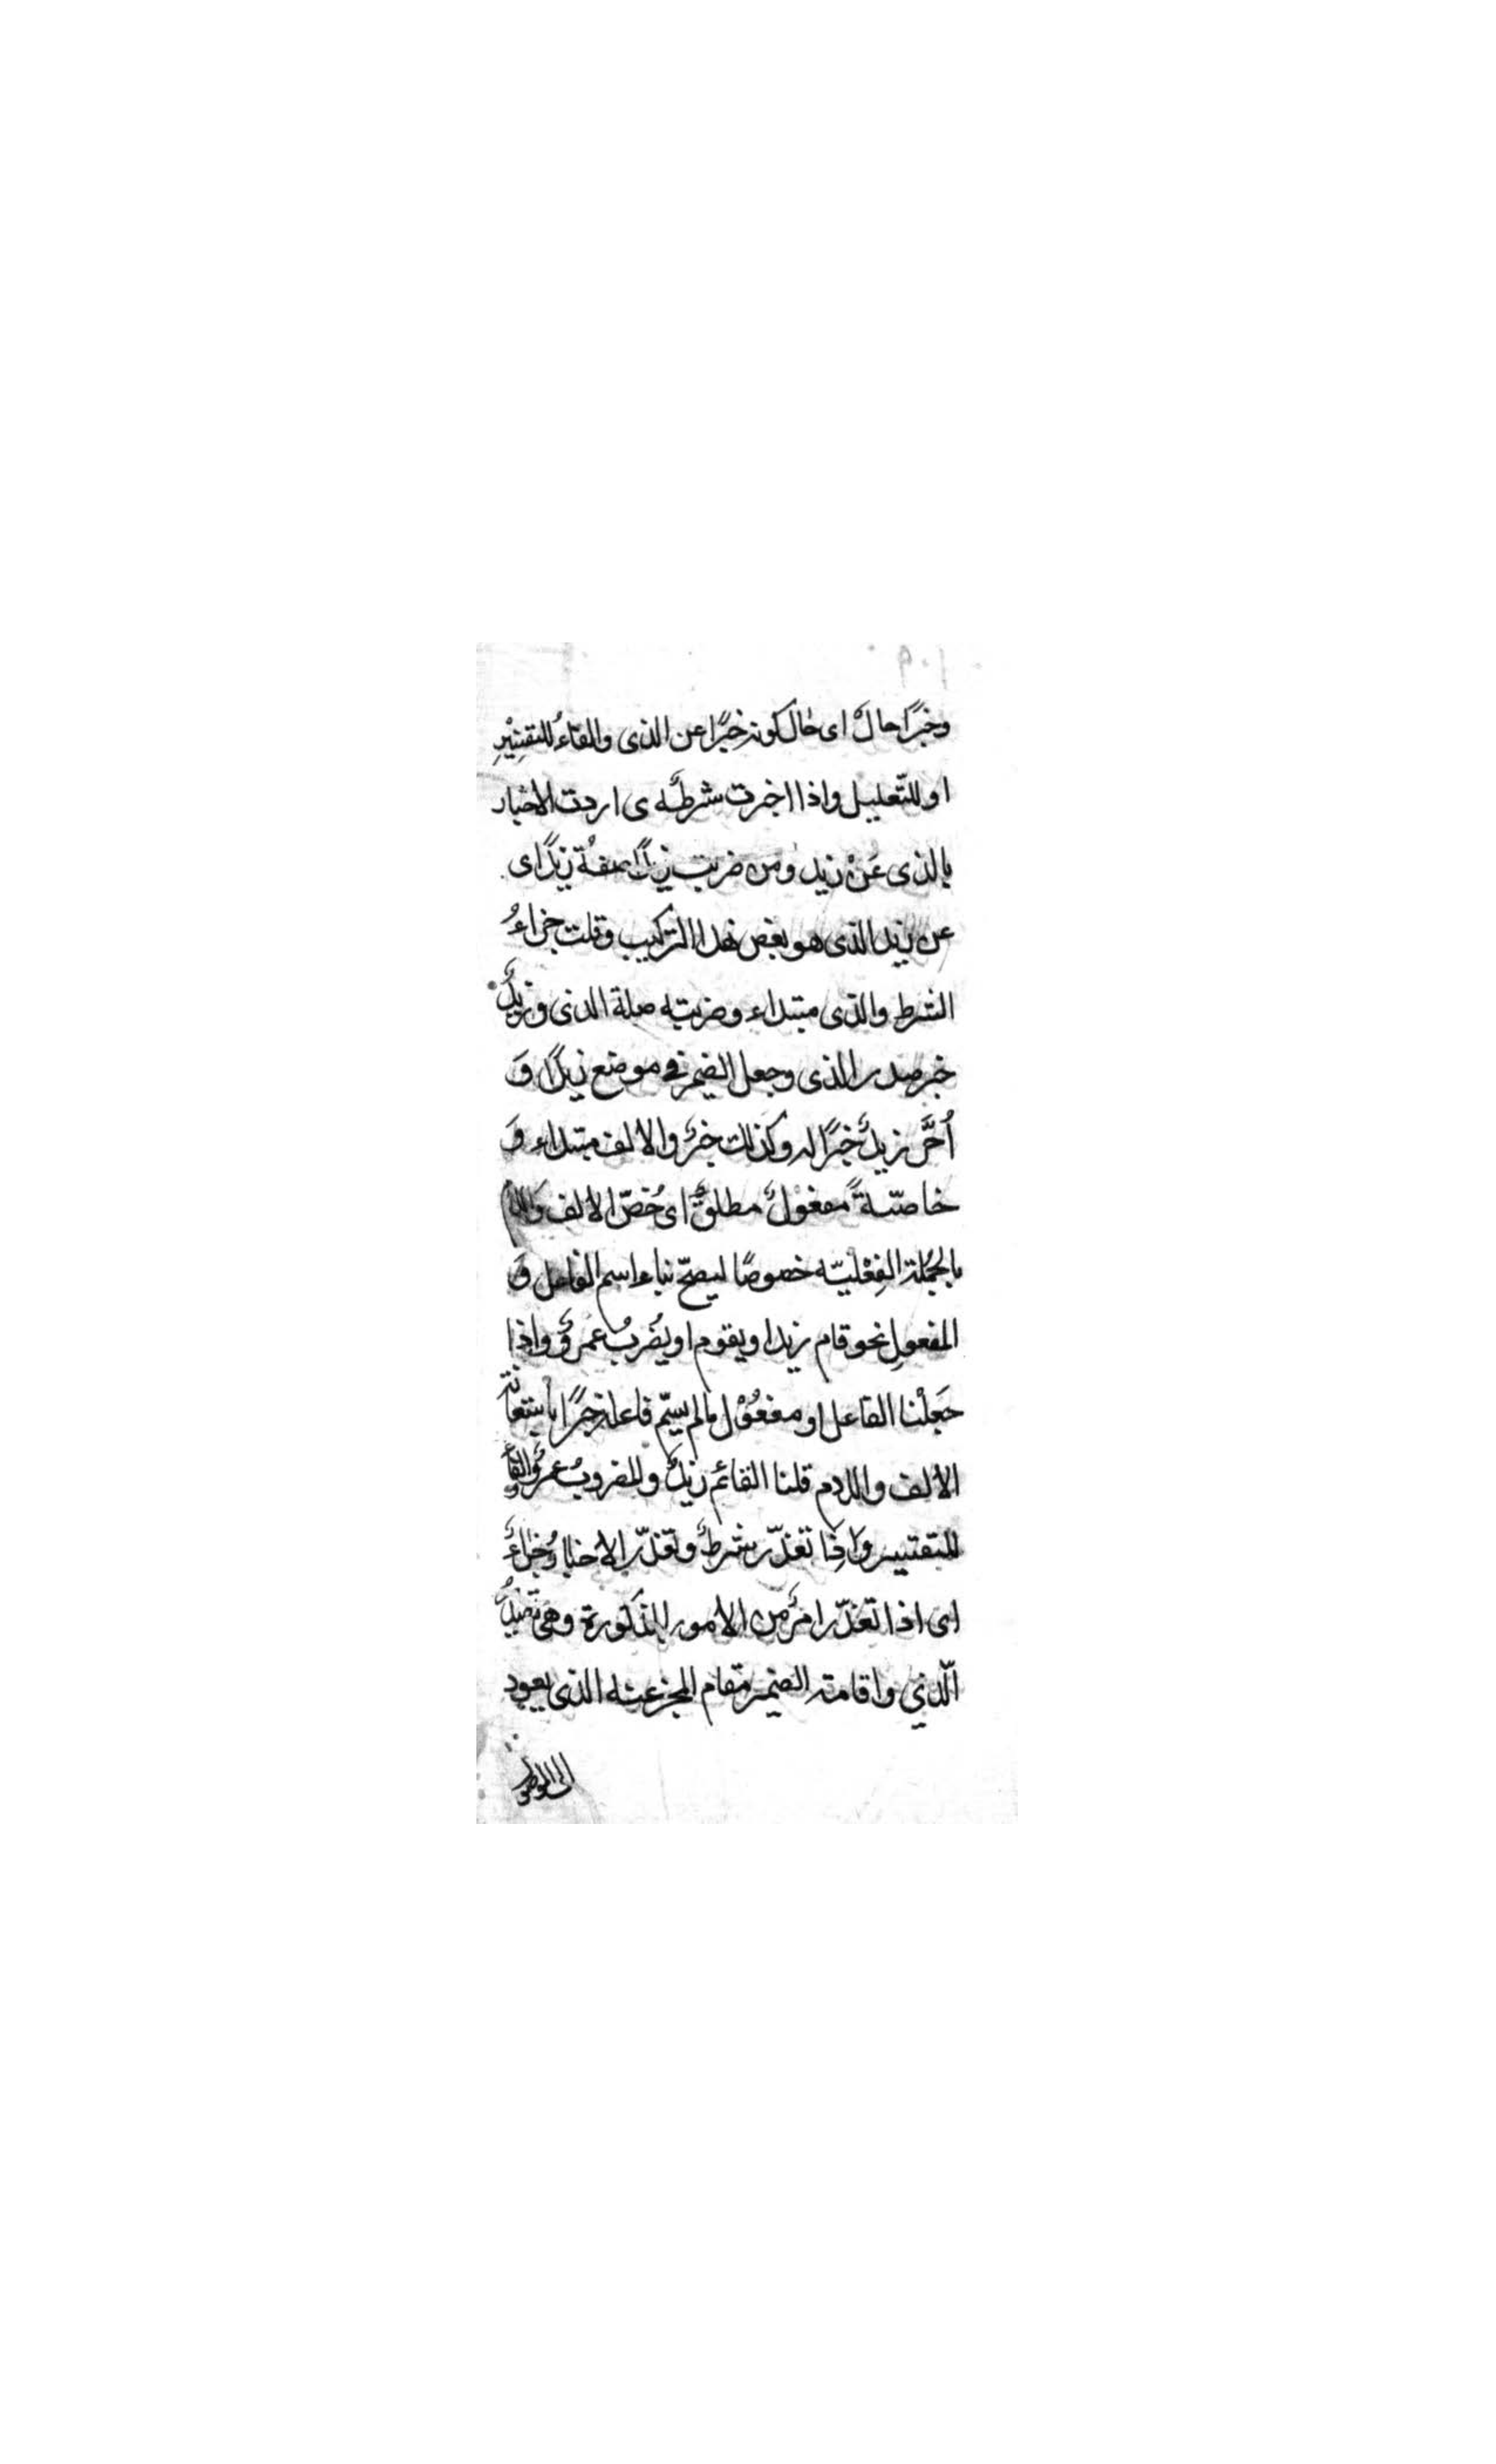 ١٠٩
وخبرًا حالٌ اى حال كونه خبرًا عن الذى والفاءُ للتفسِيْرِ
او للتّعليل واذا اخبرت شرطٌ ى اردت الاخبار
بالذى عَنْ زيد ومن ضربت زيدًا صفةُ زيدًا اى
عن زيد الذى هو بعض هذا التركيب وقلت جزاءُ
الشرط والذى مبتداء وضربته صلة الذى وزيدٌ
خبر صدر الذى وجعل الضمير فى موضع زيدًا وَ
أُخّرَ زيدٌ خبرًا له وكذلك خبرٌ والالف مبتداء وَ
خاصّةً مفعولٌ مطلقٌ اى خُصّ الالف واللام
بالجُملة الفِعْليّه خصوصًا ليصحّ بناء اسم الفاعل وَ
المفعولِ نحو قام زيد او يقوم او يُضْربُ عمرٌو واذا
جَعَلْنا الفاعل او مفعُوْل مالم يسمّ فاعله خبرًا باستعانة
الالف واللام قلنا القائم زيدٌ والمضروبُ عمرٌو والفاءُ
للتفسير وَاذا تعذّر شرطٌ وتعذّر الاخبارُ جزاءٌ
اى اذا تعذّر امرٌ من الامور المذكورة وهى تصديرُ
الّذي واقامة الضمير مقام المخبر عنه الذى يعود
الى الموصول